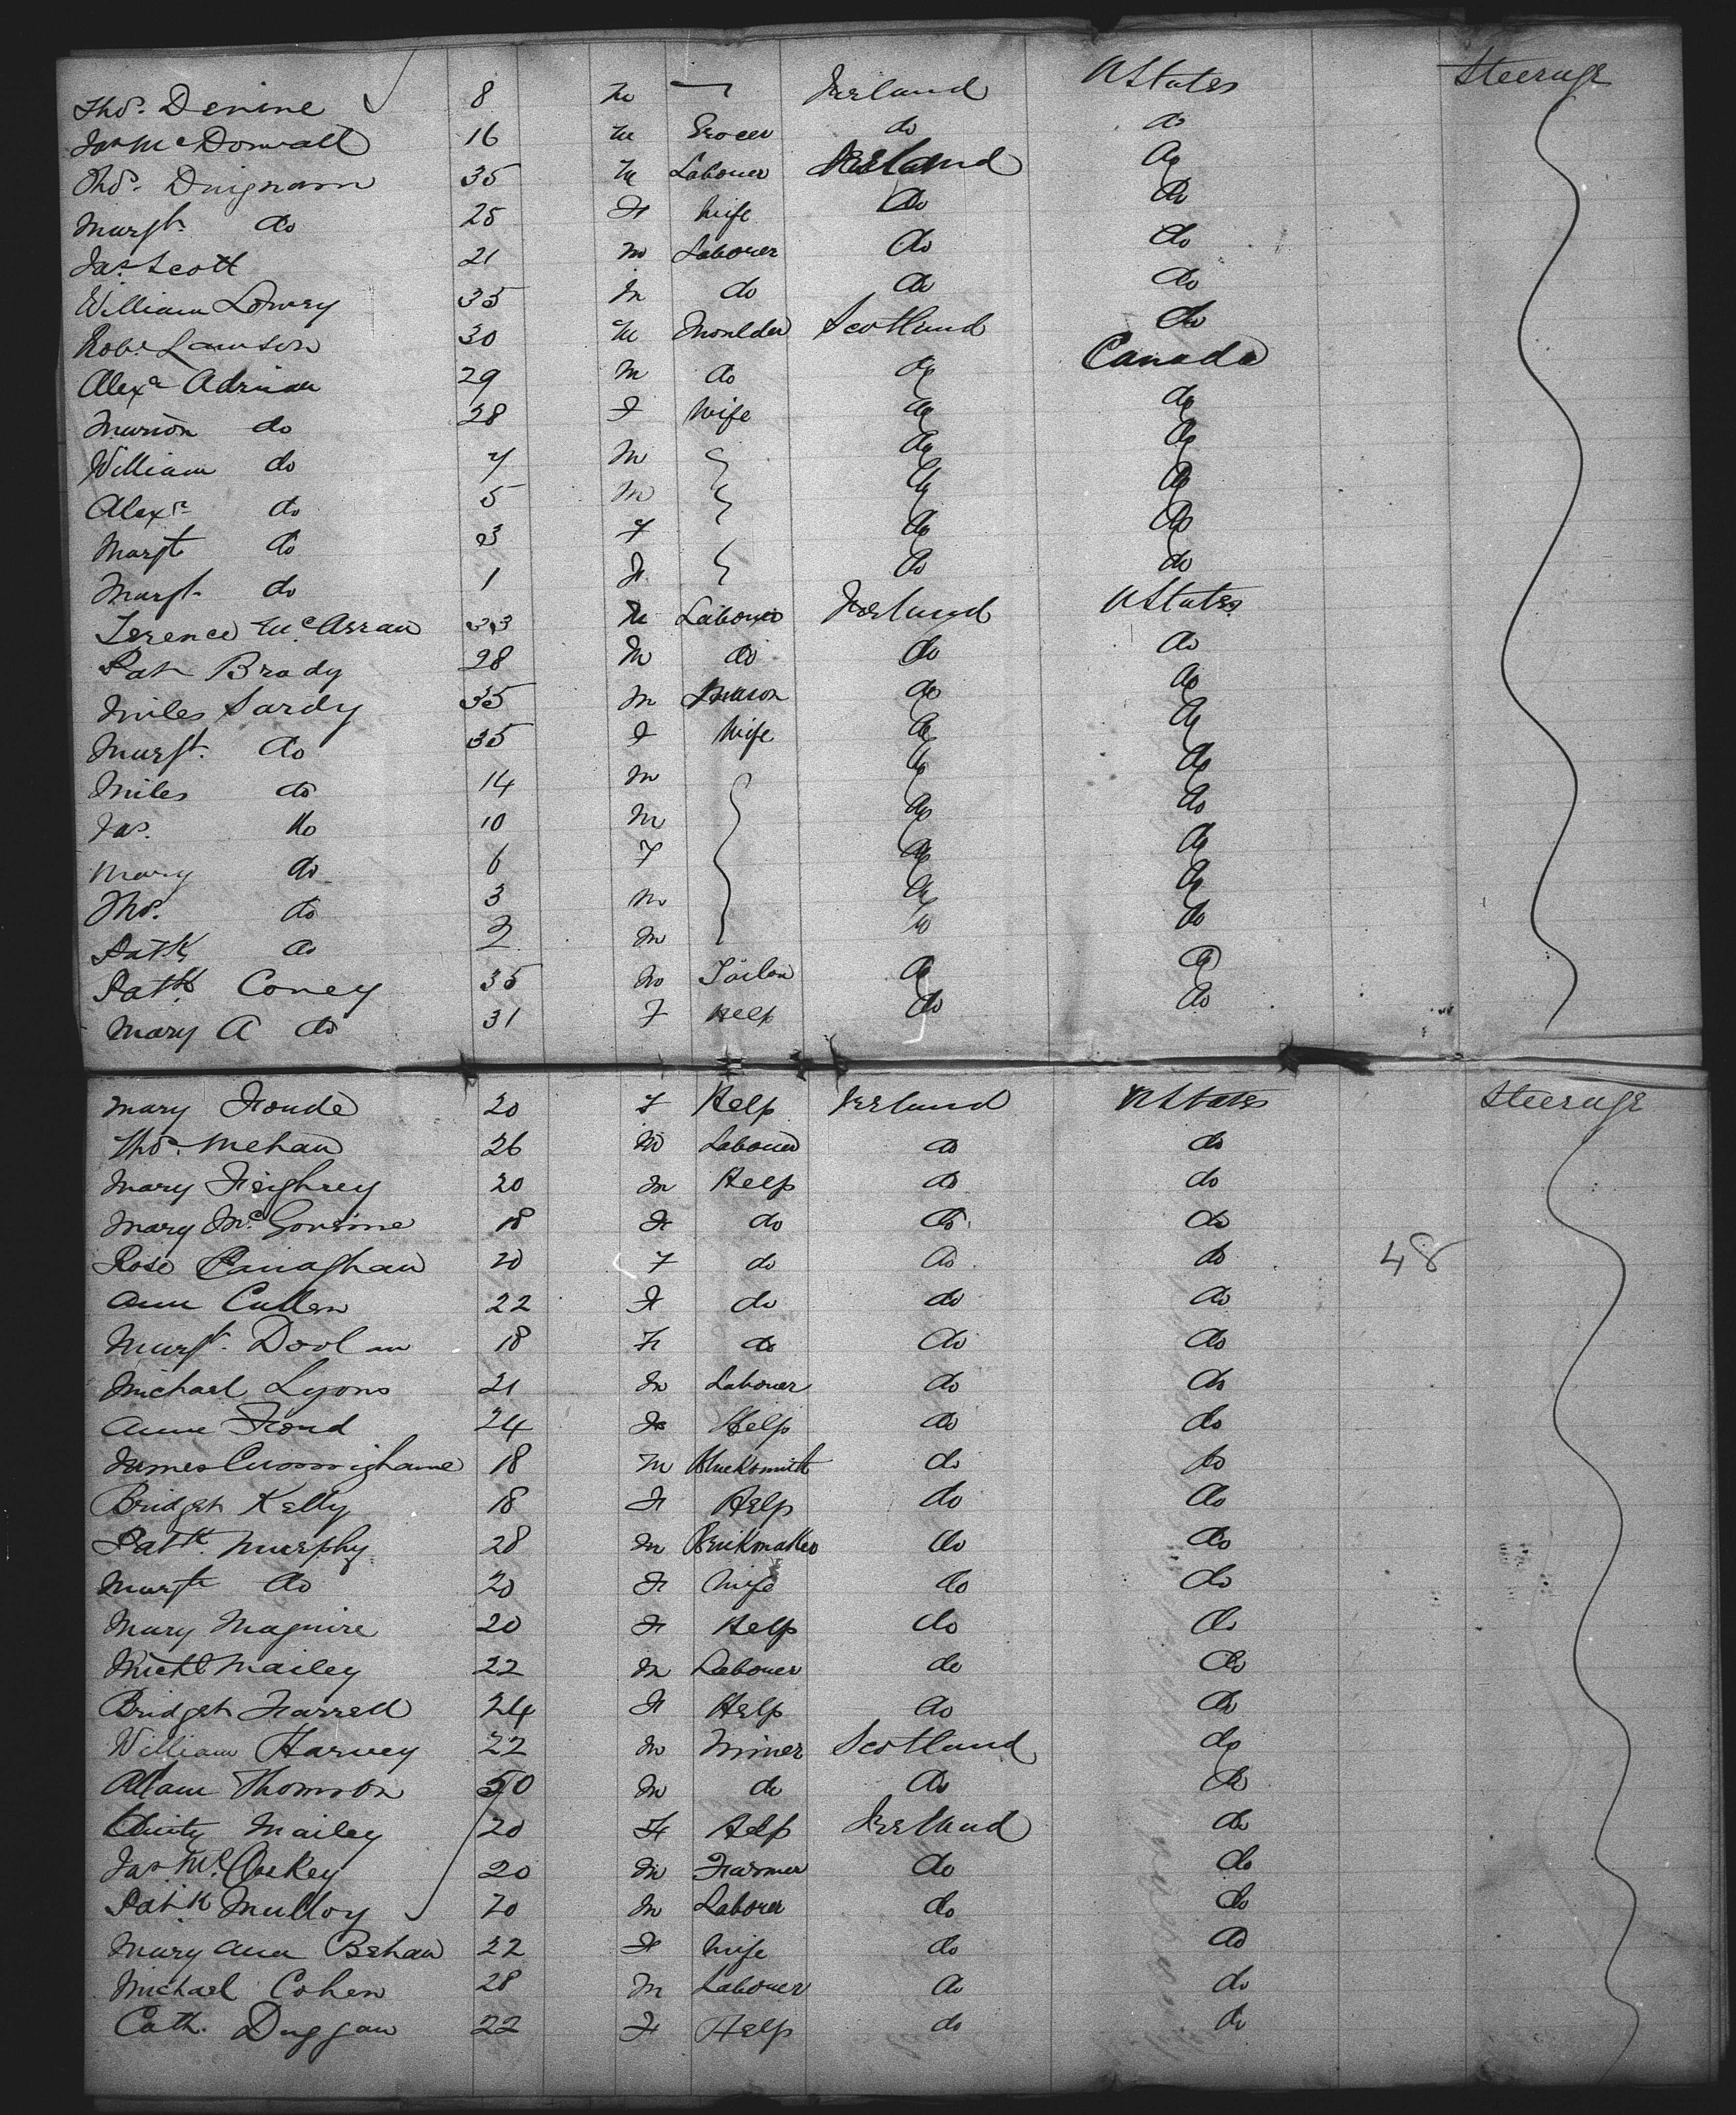 Thos. Denine 8 M — Ireland U States Steerage
Jas McDonnall 16 M Grocer do do
Thos. Duignam 35 M Labourer Ireland do
Margt. do 25 F Wife do do
Jas. Scott 21 M Labourer do do
William Lowry 35 M do do do
Robt. Lawson 30 M Moulder Scotland do
Alexr Adrian 29 M do do Canada
Marion do 28 F Wife do do
William do 7 M do do
Alexr do 5 M do do
Margt do 3 F do do
Margt. do 1 F do do
Terence McArran 33 M Labourer Ireland U States
Pat Brady 28 M do do do
Miles Sardy 35 M Mason do do
Margt. do 35 F Wife do do
Miles do 14 M do do
Jas. do 10 M do do
Mary do 6 F do do
Thos. do 3 M do do
Patk do 2 M do do
Patk. Coney 35 M Tailor do do
Mary A do 31 F Help do do
Mary Froude 20 F Help Ireland U States Steerage
Thos. Mehan 26 M Labourer do do
Mary Feighrey 20 M Help do do
Mary McGorrine 18 F do do do
Rose Canaghan 20 F do do do 48
Ann Cullen 22 F do do do
Margt. Doolan 18 F do do do
Michael Lyons 21 M Labourer do do
Anne Froud 24 F Help do do
James Cunninghame 18 M Blacksmith do do
Bridget Kelly 18 F Help do do
Patk. Murphy 28 M Brickmaker do do
Margt do 20 F Wife do do
Mary Maguire 20 F Help do do
Michl Mailey 22 M Labourer do do
Bridget Farrell 24 F Help do do
William Harvey 22 M Miner Scotland do
Adam Thomson 50 M do do do
Mailey 20 F Help Ireland do
Jas McCaskey 20 M Farmer do do
Patk Mulloy 20 M Labourer do do
Mary Ann Behan 22 F Wife do do
Michael Cohen 28 M Labourer do do
Cath. Duggan 22 F Help do do